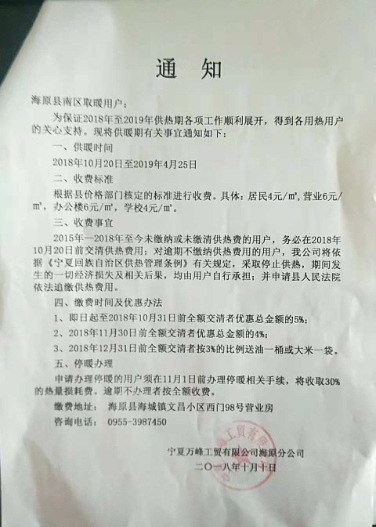 通 知
海原县南区取暖用户：
为保证2018年至2019年供热期各项工作顺利展开，得到各用热用户
的关心支持。现将供暖期有关事宜通知如下：
一、供暖时间
2018年10月20日至2019年4月25日
二、收费标准
根据县价格部门核定的标准进行收费。具体：居民4元/㎡，营业6元/
㎡，办公楼6元/㎡，学校4元/㎡。
三、收费事宜
2015年—2018年至今未缴纳或未缴清供热费的用户，务必在2018年
10月20日前交清供热费用；对逾期不缴纳供热费用的用户，我公司将依
据《宁夏回族自治区供热管理条例》有关规定，采取停止供热，期间发
生的一切经济损失及相关后果，均由用户自行承担；并申请县人民法院
依法追缴供热费用。
四、缴费时间及优惠办法
1、即日起至2018年10月31日前全额交清者优惠总金额的5%；
2、2018年11月30日前全额交清者优惠总金额的4%；
3、2018年12月31日前全额交清者按3%的比例送油一桶或大米一袋。
五、停暖办理
申请办理停暖的用户须在11月1日前办理停暖相关手续，将收取30%
的热量损耗费。逾期不办理者按全额收费。
缴费地址： 海原县海城镇文昌小区西门98号营业房
咨询电话： 0955-3987450
宁夏万峰工贸有限公司海原分公司
二〇一八年十月十日